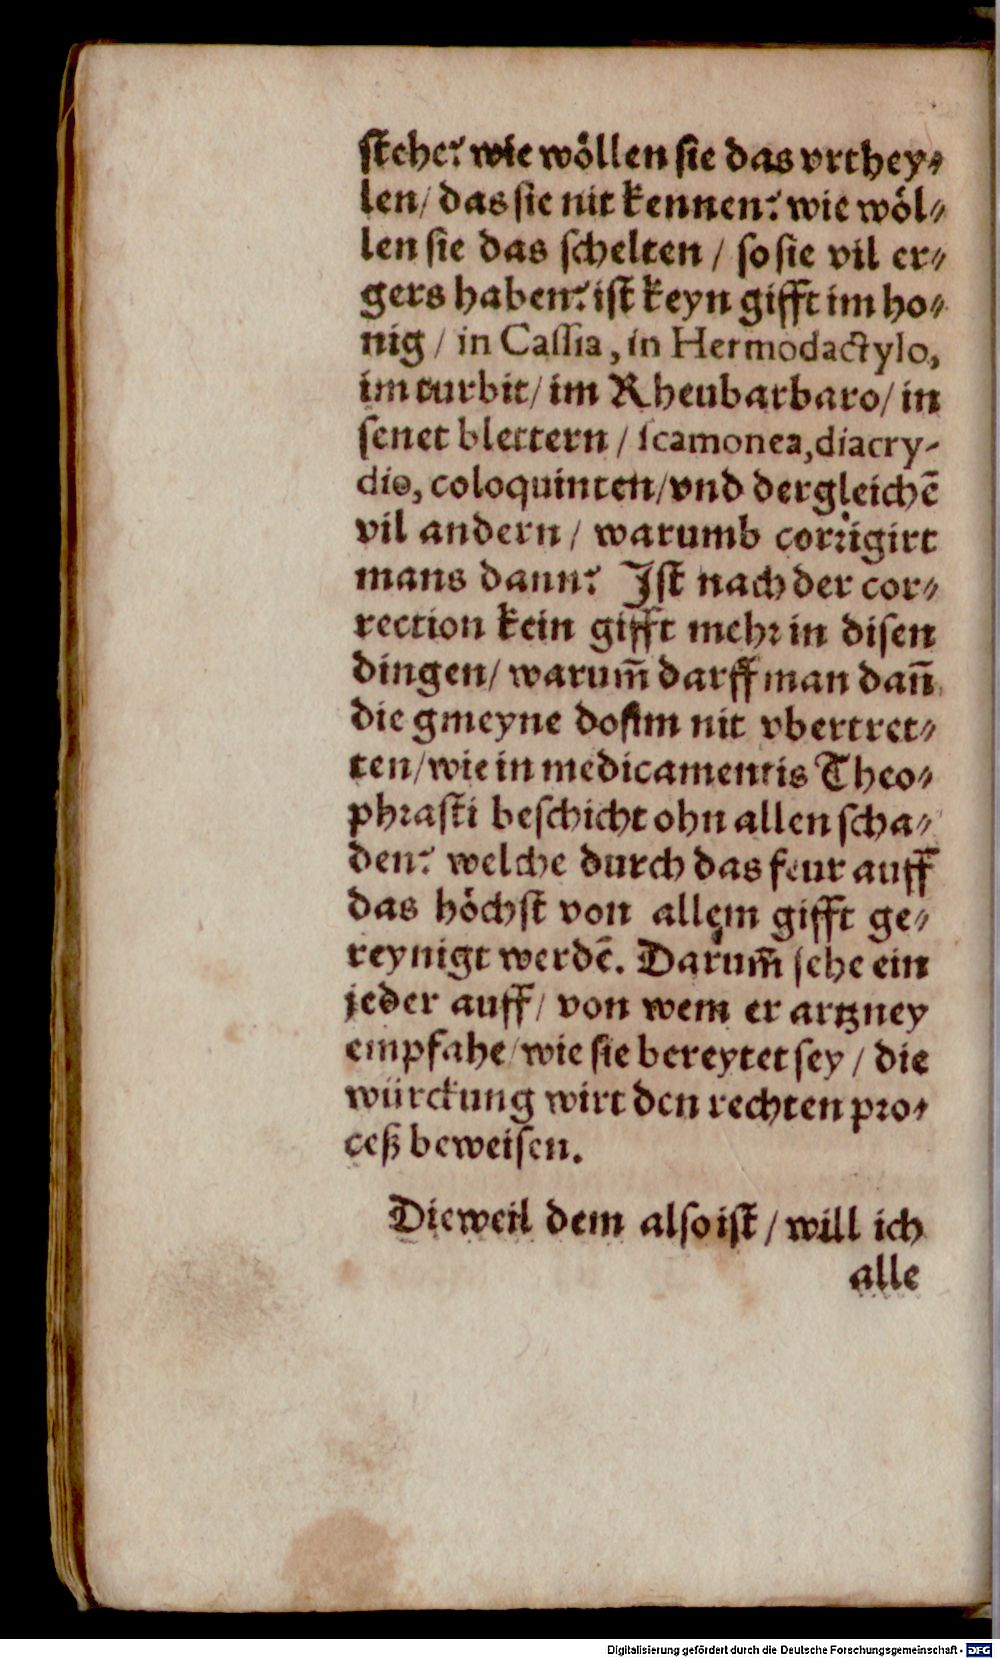 stehe? wie wöllen sie das vrthey⸗
len/ das sie nit kennen? wie wöl⸗
len sie das schelten / so sie vil er⸗
gers haben? ist keyn gifft im ho⸗
nig / in Cassia, in Hermodactylo,
im turbit/ im Rheubarbaro/ in
senet blettern / scamonea, diacry-
dio, coloquinten/ vnd dergleichē
vil andern / warumb corrigirt
mans dann? Ist nach der cor⸗
rection kein gifft mehr in disen
dingen/ warum̄ darff man dañ
die gmeyne dosim nit vbertret⸗
ten/ wie in medicamentis Theo⸗
phrasti beschicht ohn allen scha⸗
den? welche durch das feur auff
das höchst von allem gifft ge⸗
reynigt werdē. Darum̄ sehe ein
jeder auff/ von wem er artzney
empfahe/ wie sie bereytet sey / die
würckung wirt den rechten pro⸗
ceß beweisen.
Dieweil dem also ist / will ich
alle
Digitalisierung gefördert durch die Deutsche Forschungsgemeinschaft - DFG